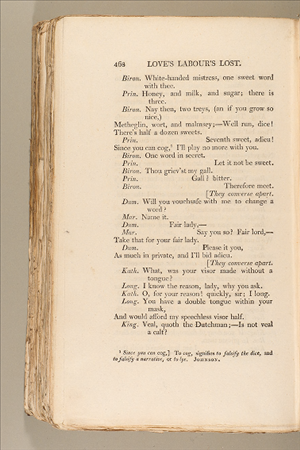 468 LOVE'S LABOUR'S LOST.
Biron. White-handed mistress, one sweet word
with thee.
Prin. Honey, and milk, and sugar; there is
three.
Biron. Nay then, two treys, (an if you grow so
nice,)
Metheglin, wort, and malmsey;—Well run, dice!
There's half a dozen sweets.
Prin. Seventh sweet, adieu!
Since you can cog,¹ I'll play no more with you.
Biron. One word in secret.
Prin. Let it not be sweet.
Biron. Thou griev'st my gall.
Prin. Gall? bitter.
Biron. Therefore meet.
[They converse apart.
Dum. Will you vouchsafe with me to change a
word?
Mar. Name it.
Dum. Fair lady,—
Mar. Say you so? Fair lord,—
Take that for your fair lady.
Dum. Please it you,
As much in private, and I'll bid adieu.
[They converse apart.
Kath. What, was your visor made without a
tongue?
Long. I know the reason, lady, why you ask.
Kath. O, for your reason! quickly, sir; I long.
Long. You have a double tongue within your
mask,
And would afford my speechless visor half.
King. Veal, quoth the Dutchman;—Is not veal
a calf?
¹ Since you can cog,] To cog, signifies to falsify the dice, and
to falsify a narrative, or to lye. JOHNSON.